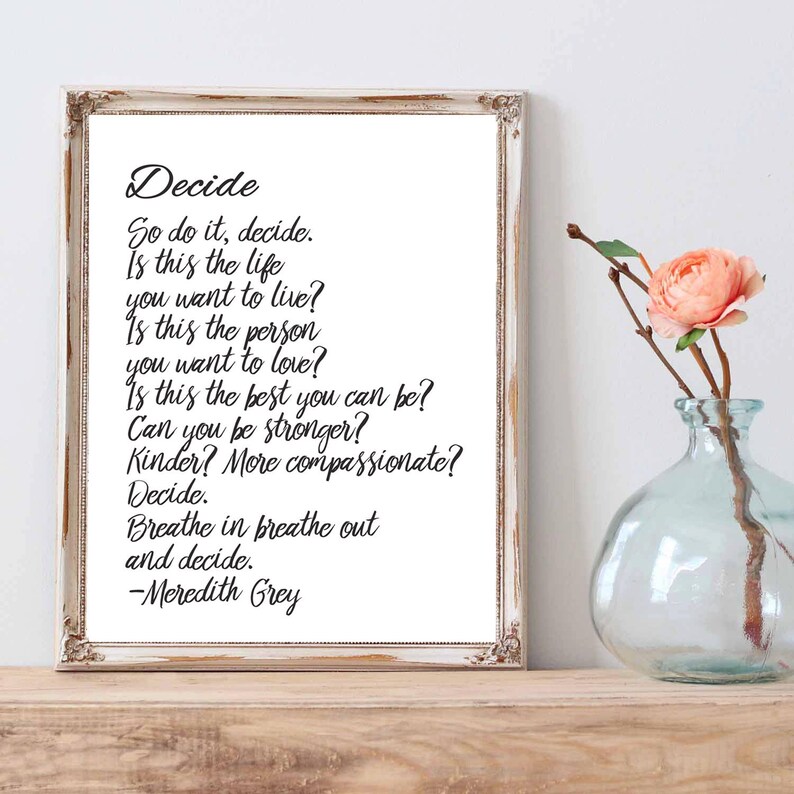 Decide
So do it, decide.
Is this the life
you want to live?
Is this the person
you want to love?
Is this the best you can be?
Can you be stronger?
Kinder? More compassionate?
Decide.
Breathe in breathe out
and decide.
-Meredith Grey